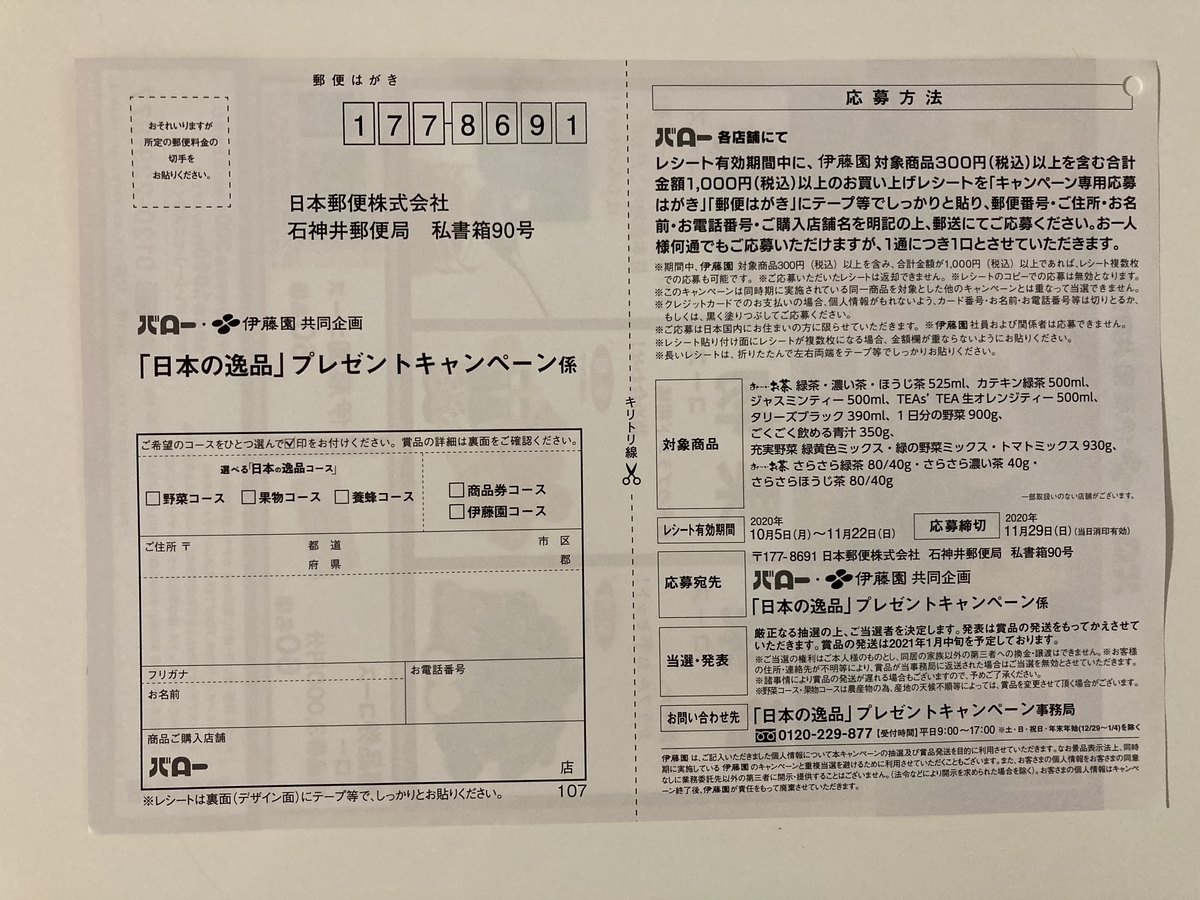 郵便はがき
おそれいりますが
所定の郵便料金の
切手を
お貼りください。
177-8691
日本郵便株式会社
石神井郵便局 私書箱90号
バロー・伊藤園 共同企画
「日本の逸品」プレゼントキャンペーン係
ご希望のコースをひとつ選んで☑印をお付けください。賞品の詳細は裏面をご確認ください。
選べる「日本の逸品コース」
□野菜コース □果物コース □養蜂コース
□商品券コース
□伊藤園コース
ご住所 〒 都 道 市 区
府 県 郡
フリガナ
お名前
お電話番号
商品ご購入店舗
バロー 店
※レシートは裏面(デザイン面)にテープ等で、しっかりとお貼りください。 107
キリトリ線
応募方法
バロー 各店舗にて
レシート有効期間中に、伊藤園 対象商品300円(税込)以上を含む合計
金額1,000円(税込)以上のお買い上げレシートを「キャンペーン専用応募
はがき」「郵便はがき」にテープ等でしっかりと貼り、郵便番号・ご住所・お名
前・お電話番号・ご購入店舗名を明記の上、郵送にてご応募ください。お一人
様何通でもご応募いただけますが、1通につき1口とさせていただきます。
※期間中、伊藤園 対象商品300円(税込)以上を含み、合計金額が1,000円(税込)以上であれば、レシート複数枚
での応募も可能です。※ご応募いただいたレシートは返却できません。※レシートのコピーでの応募は無効となります。
※このキャンペーンは同時期に実施されている同一商品を対象とした他のキャンペーンとは重なって当選できません。
※クレジットカードでのお支払いの場合、個人情報がもれないよう、カード番号・お名前・お電話番号等は切りとるか、
もしくは、黒く塗りつぶしてご応募ください。
※ご応募は日本国内にお住まいの方に限らせていただきます。※伊藤園社員および関係者は応募できません。
※レシート貼り付け面にレシートが複数枚になる場合、金額欄が重ならないようにお貼りください。
※長いレシートは、折りたたんで左右両端をテープ等でしっかりお貼りください。
対象商品
お〜いお茶 緑茶・濃い茶・ほうじ茶 525ml、カテキン緑茶 500ml、
ジャスミンティー 500ml、TEAs' TEA 生オレンジティー 500ml、
タリーズブラック 390ml、1日分の野菜 900g、
ごくごく飲める青汁 350g、
充実野菜 緑黄色ミックス・緑の野菜ミックス・トマトミックス 930g、
お〜いお茶 さらさら緑茶 80/40g・さらさら濃い茶 40g・
さらさらほうじ茶 80/40g
一部取扱いのない店舗がございます。
レシート有効期間
2020年
10月5日(月)〜11月22日(日)
応募締切
2020年
11月29日(日)(当日消印有効)
応募宛先
〒177-8691 日本郵便株式会社 石神井郵便局 私書箱90号
バロー・伊藤園 共同企画
「日本の逸品」プレゼントキャンペーン係
当選・発表
厳正なる抽選の上、ご当選者を決定します。発表は賞品の発送をもってかえさせて
いただきます。賞品の発送は2021年1月中旬を予定しております。
※ご当選の権利はご本人様のものとし、同居の家族以外の第三者への換金・譲渡はできません。※お客様
の住所・連絡先が不明等により、賞品が当事務局に返送された場合はご当選を無効とさせていただきます。
※諸事情により賞品の発送が遅れる場合もございますので、予めご了承ください。
※野菜コース・果物コースは農産物の為、産地の天候不順等によっては、賞品を変更させて頂く場合がございます。
お問い合わせ先
「日本の逸品」プレゼントキャンペーン事務局
0120-229-877 【受付時間】平日9:00〜17:00 ※土・日・祝日・年末年始(12/29〜1/4)を除く
伊藤園 は、ご記入いただきました個人情報について本キャンペーンの抽選及び賞品発送を目的に利用させていただきます。なお景品表示法上、同時
期に実施している 伊藤園 のキャンペーンと重複当選を避けるために利用させていただくこともございます。また、お客さまの個人情報をお客さまの同意
なしに業務委託先以外の第三者に開示・提供することはございません。(法令などにより開示を求められた場合を除く)。お客さまの個人情報はキャンペ
ーン終了後、伊藤園が責任をもって廃棄させていただきます。